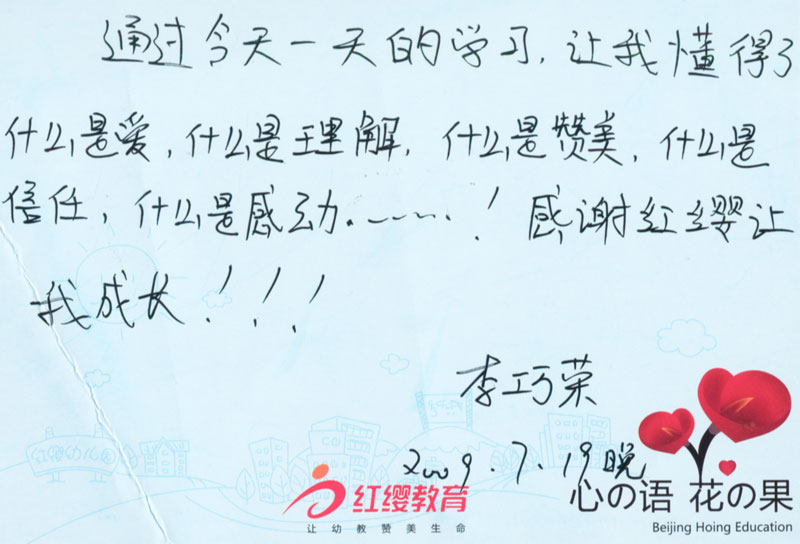 通过今天一天的学习,让我懂得了
什么是爱,什么是理解,什么是赞美,什么是
信任,什么是感动……!感谢红缨让
我成长!!!
李巧荣
2009.7.19晚
红缨幼儿园
红缨教育
让幼教赞美生命
心の语 花の果
Beijing Hoing Education